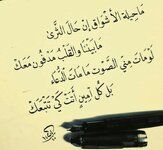 مَا حِيلة الأشْوَاقِ إنْ حَالَ الثَّرَىٰ
مَا بيْنَنا والقَلْبُ مَدْفُون مَعَكْ
لَو مَاتَ مِنِّي الصَّوْت مَا مَاتَ الدُّعَاء
بَل كُل آمِين أَتَتْ كَيْ تَتْبَعَكْ